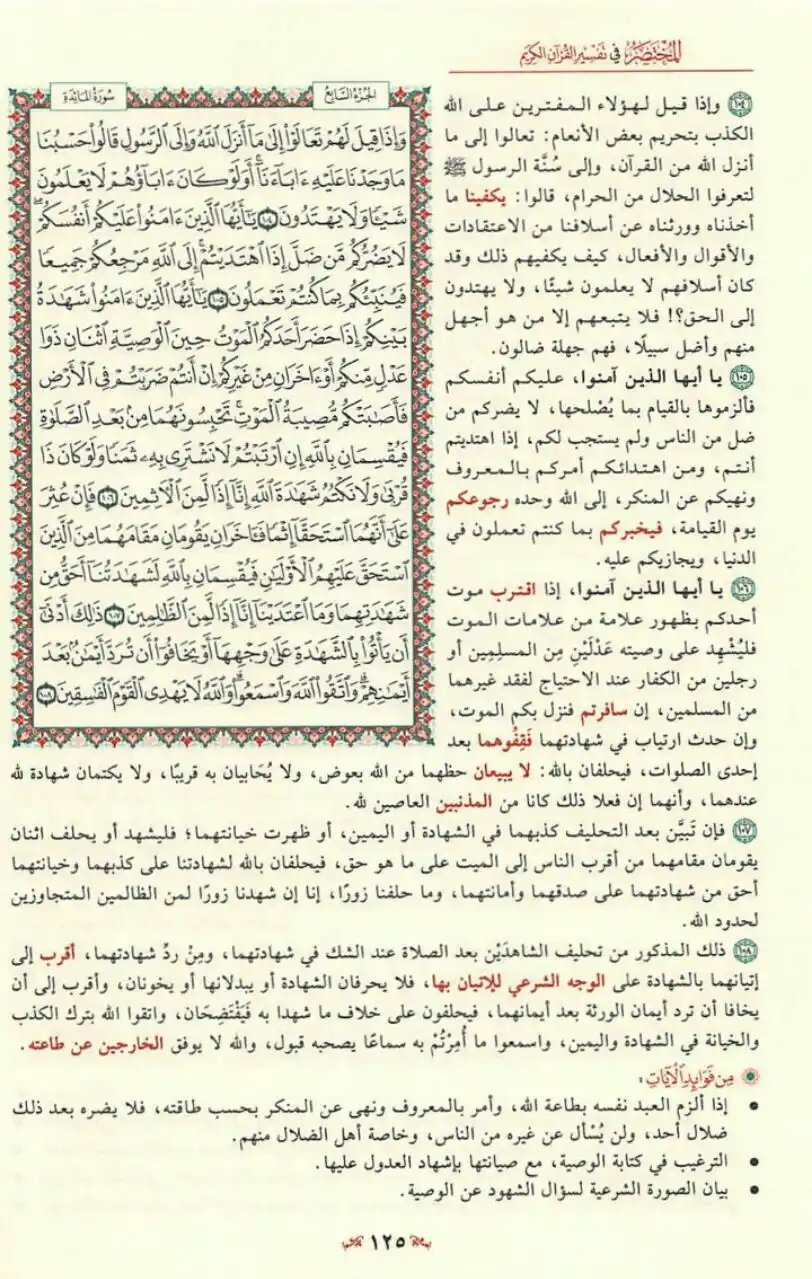 المختصر في تفسير القرآن الكريم
سورة المائدة
الجزء السابع
وَإِذَا قِيلَ لَهُمْ تَعَالَوْا إِلَىٰ مَا أَنزَلَ ٱللَّهُ وَإِلَى ٱلرَّسُولِ قَالُوا حَسْبُنَا
مَا وَجَدْنَا عَلَيْهِ ءَابَآءَنَآ أَوَلَوْ كَانَ ءَابَآؤُهُمْ لَا يَعْلَمُونَ
شَيْـًٔا وَلَا يَهْتَدُونَ ١٠٤ يَٰٓأَيُّهَا ٱلَّذِينَ ءَامَنُوا عَلَيْكُمْ أَنفُسَكُمْ
لَا يَضُرُّكُم مَّن ضَلَّ إِذَا ٱهْتَدَيْتُمْ إِلَى ٱللَّهِ مَرْجِعُكُمْ جَمِيعًا
فَيُنَبِّئُكُم بِمَا كُنتُمْ تَعْمَلُونَ ١٠٥ يَٰٓأَيُّهَا ٱلَّذِينَ ءَامَنُوا شَهَٰدَةُ
بَيْنِكُمْ إِذَا حَضَرَ أَحَدَكُمُ ٱلْمَوْتُ حِينَ ٱلْوَصِيَّةِ ٱثْنَانِ ذَوَا
عَدْلٍ مِّنكُمْ أَوْ ءَاخَرَانِ مِنْ غَيْرِكُمْ إِنْ أَنتُمْ ضَرَبْتُمْ فِي ٱلْأَرْضِ
فَأَصَٰبَتْكُم مُّصِيبَةُ ٱلْمَوْتِ تَحْبِسُونَهُمَا مِنۢ بَعْدِ ٱلصَّلَوٰةِ
فَيُقْسِمَانِ بِٱللَّهِ إِنِ ٱرْتَبْتُمْ لَا نَشْتَرِي بِهِۦ ثَمَنًا وَلَوْ كَانَ ذَا
قُرْبَىٰ وَلَا نَكْتُمُ شَهَٰدَةَ ٱللَّهِ إِنَّآ إِذًا لَّمِنَ ٱلْءَاثِمِينَ ١٠٦ فَإِنْ عُثِرَ
عَلَىٰٓ أَنَّهُمَا ٱسْتَحَقَّآ إِثْمًا فَـَٔاخَرَانِ يَقُومَانِ مَقَامَهُمَا مِنَ ٱلَّذِينَ
ٱسْتَحَقَّ عَلَيْهِمُ ٱلْأَوْلَيَٰنِ فَيُقْسِمَانِ بِٱللَّهِ لَشَهَٰدَتُنَآ أَحَقُّ مِن
شَهَٰدَتِهِمَا وَمَا ٱعْتَدَيْنَآ إِنَّآ إِذًا لَّمِنَ ٱلظَّٰلِمِينَ ١٠٧ ذَٰلِكَ أَدْنَىٰٓ
أَن يَأْتُوا بِٱلشَّهَٰدَةِ عَلَىٰ وَجْهِهَآ أَوْ يَخَافُوٓا أَن تُرَدَّ أَيْمَٰنٌۢ بَعْدَ
أَيْمَٰنِهِمْ وَٱتَّقُوا ٱللَّهَ وَٱسْمَعُوا وَٱللَّهُ لَا يَهْدِي ٱلْقَوْمَ ٱلْفَٰسِقِينَ ١٠٨
١٠٤ وإذا قيل لهؤلاء المفترين على الله
الكذب بتحريم بعض الأنعام: تعالوا إلى ما
أنزل الله من القرآن، وإلى سُنَّة الرسول ﷺ
لتعرفوا الحلال من الحرام، قالوا: يكفينا ما
أخذناه وورثناه عن أسلافنا من الاعتقادات
والأقوال والأفعال، كيف يكفيهم ذلك وقد
كان أسلافهم لا يعلمون شيئًا، ولا يهتدون
إلى الحق؟! فلا يتبعهم إلا من هو أجهل
منهم وأضل سبيلًا، فهم جهلة ضالون.
١٠٥ يا أيها الذين آمنوا، عليكم أنفسكم
فألزموها بالقيام بما يُصْلحها، لا يضركم من
ضل من الناس ولم يستجب لكم، إذا اهتديتم
أنتم، ومن اهتدائكم أمركم بالمعروف
ونهيكم عن المنكر، إلى الله وحده رجوعكم
يوم القيامة، فيخبركم بما كنتم تعملون في
الدنيا، ويجازيكم عليه.
١٠٦ يا أيها الذين آمنوا، إذا اقترب موت
أحدكم بظهور علامة من علامات الموت
فليُشْهِد على وصيته عَدْلَيْنِ مِن المسلِمِين أو
رجلين من الكفار عند الاحتياج لفقد غيرهما
من المسلمين، إن سافرتم فنزل بكم الموت،
وإن حدث ارتياب في شهادتهما فَقِفُوهما بعد
إحدى الصلوات، فيحلفان بالله: لا يبيعان حظهما من الله بعوض، ولا يُحَابيان به قريبًا، ولا يكتمان شهادة لله
عندهما، وأنهما إن فعلا ذلك كانا من المذنبين العاصين لله.
١٠٧ فإن تَبيَّن بعد التحليف كذبهما في الشهادة أو اليمين، أو ظهرت خيانتهما؛ فليشهد أو يحلف اثنان
يقومان مقامهما من أقرب الناس إلى الميت على ما هو حق، فيحلفان بالله لشهادتنا على كذبهما وخيانتهما
أحق من شهادتهما على صدقهما وأمانتهما، وما حلفنا زورًا، إنا إن شهدنا زورًا لمن الظالمين المتجاوزين
لحدود الله.
١٠٨ ذلك المذكور من تحليف الشاهدَيْن بعد الصلاة عند الشك في شهادتهما، ومِنْ ردِّ شهادتهما، أقرب إلى
إتيانهما بالشهادة على الوجه الشرعي للإتيان بها، فلا يحرفان الشهادة أو يبدلانها أو يخونان، وأقرب إلى أن
يخافا أن ترد أيمان الورثة بعد أيمانهما، فيحلفون على خلاف ما شهدا به فَيَفْتَضِحَان، واتقوا الله بترك الكذب
والخيانة في الشهادة واليمين، واسمعوا ما أُمِرْتُمْ به سماعًا يصحبه قبول، والله لا يوفق الخارجين عن طاعته.
مِن فَوَائِدِ الآيَاتِ:
• إذا ألزم العبد نفسه بطاعة الله، وأمر بالمعروف ونهى عن المنكر بحسب طاقته، فلا يضره بعد ذلك
ضلال أحد، ولن يُسْأل عن غيره من الناس، وخاصة أهل الضلال منهم.
• الترغيب في كتابة الوصية، مع صيانتها بإشهاد العدول عليها.
• بيان الصورة الشرعية لسؤال الشهود عن الوصية.
١٢٥